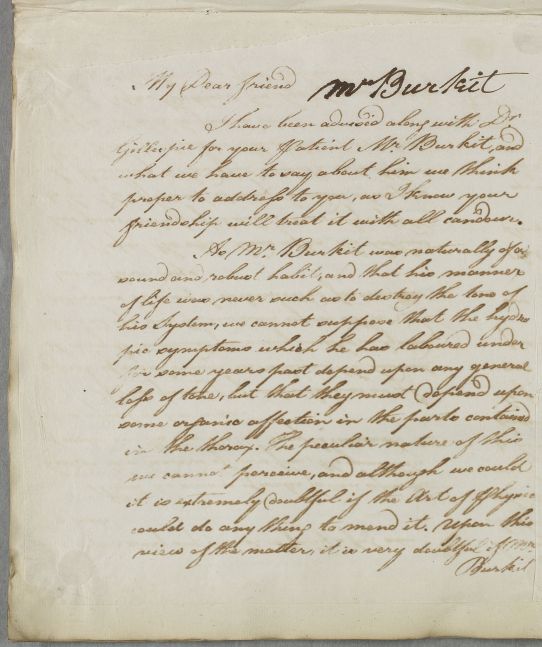 My Dear friend
Mr Burkit
I have been advised along with Dr
Gillespie for your Patient Mr. Burkit, and
what we have to say about him we think
proper to address to you, as I know your
friendship will treat it with all candour.
As Mr. Burkit was naturally of a
sound and robust habit, and that his manner
of life was never such as to destroy the tone of
his System, we cannot suppose that the hydro
pic symptoms which he has laboured under
for some years past depend upon any general
loss of tone, but that they must depend upon
some organic affection in the parts contained
in the thorax. The peculiar nature of this
we cannot perceive, and although we could
it is extremely doubtful if the Art of Physic
could do any thing to mend it. Upon this
view of the matter, it is very doubtful if Mr.
Burkit